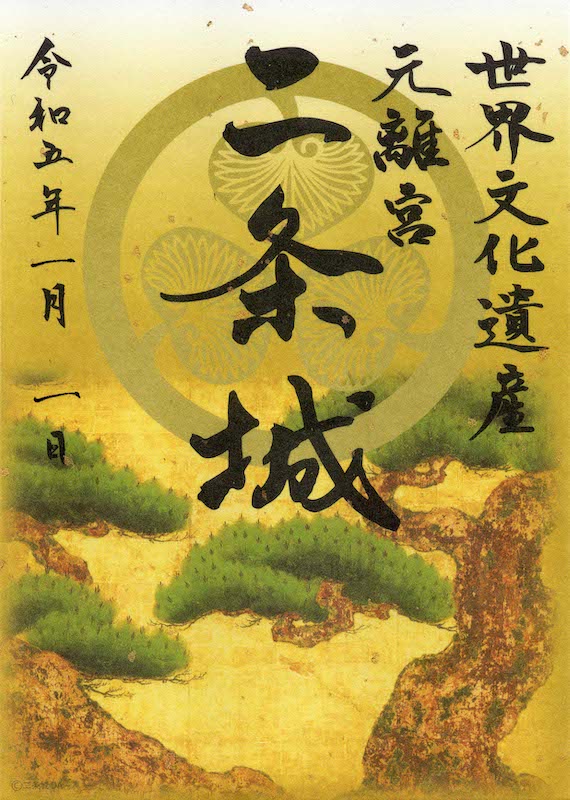 世界文化遺産
元離宮
二条城
令和五年一月一日